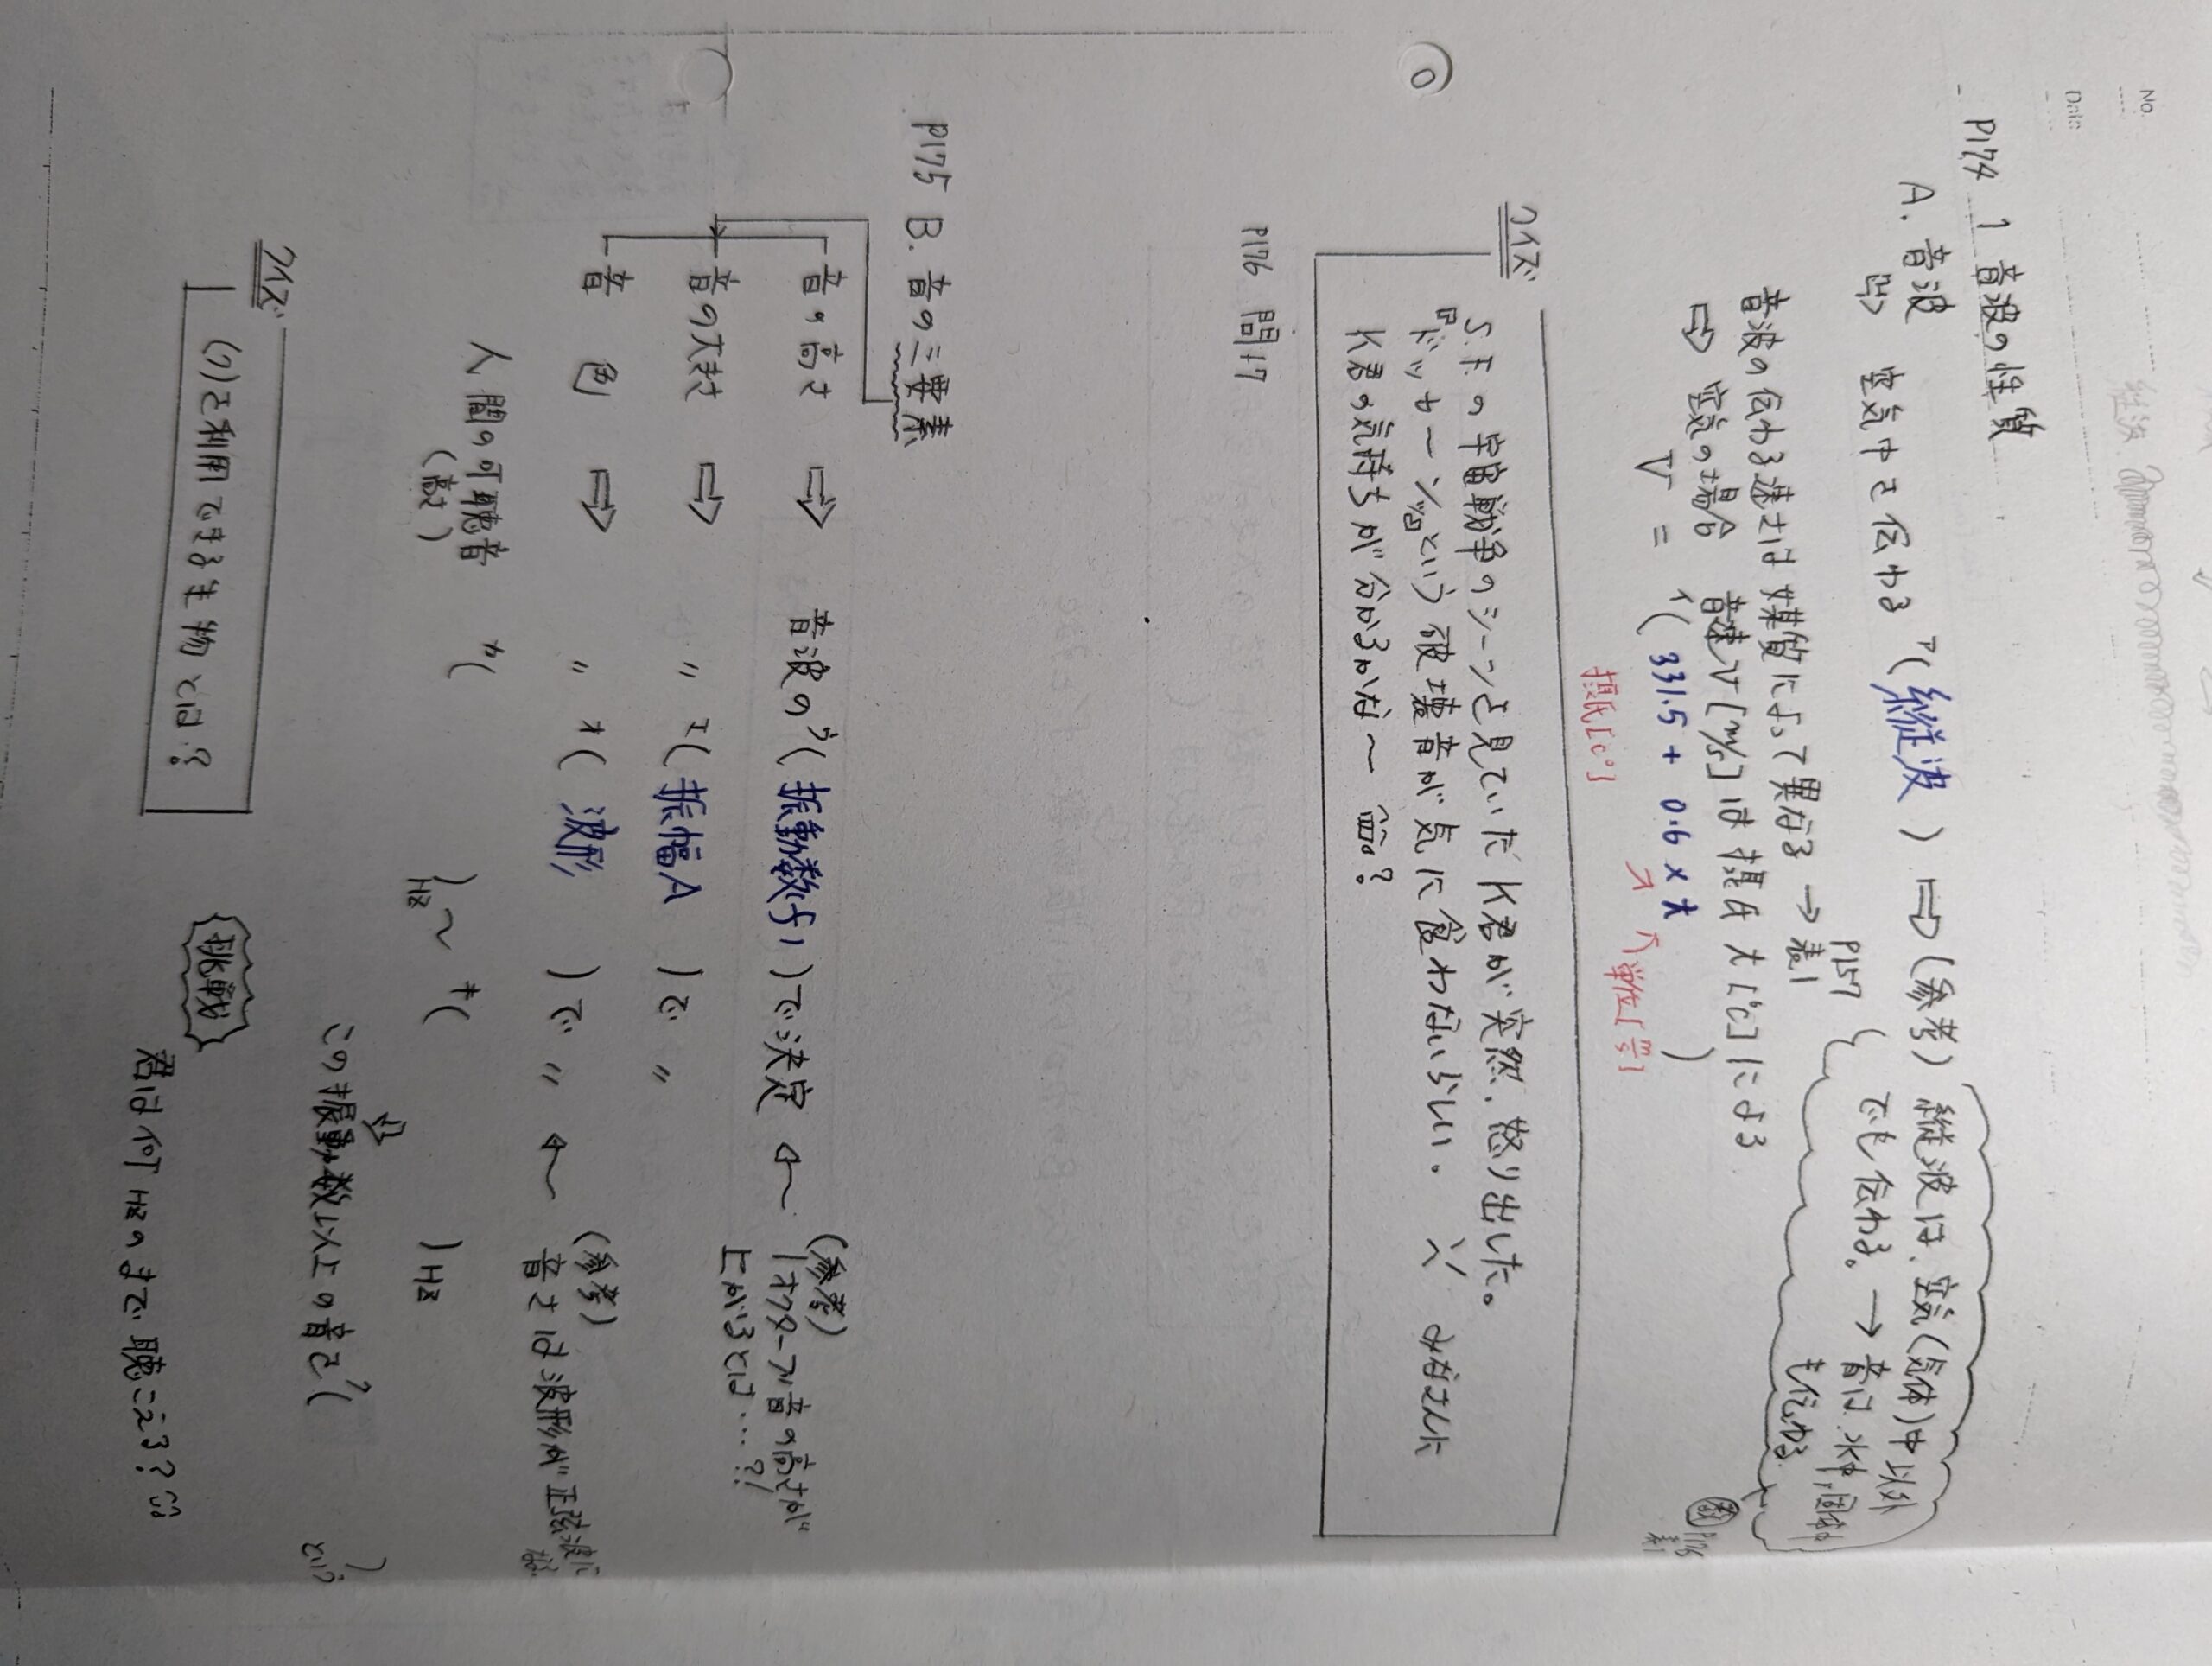 No.
Date
P174 1 音波の性質
A. 音波
⇨ 空気中を伝わる ア( 縦波 ) ⇨ (参考) 縦波は、空気(気体)中以外
でも伝わる。 → 音は水中、固体中
も伝わる
音波の伝わる速さは媒質によって異なる → 表1
P157
⇨ 空気の場合 音速V[m/s]は摂氏 t[℃]による
V = イ( 331.5 + 0.6 × t )
摂氏[c°]
単位[m/s]
P176
表1
クイズ
S.F.の宇宙戦争のシーンを見ていたK君が突然、怒り出した。
『ドッカーン』という破壊音が気に食わないらしい。 みなさんは
K君の気持ちが分かるかな〜?
P176 問17
P175 B. 音の三要素
音の高さ ⇨ 音波の ウ( 振動数f )で決定
(参考)
1オクターブ音の高さが
上がるとは…?!
音の大きさ ⇨ 〃 エ( 振幅A )で 〃
音 色 ⇨ 〃 オ( 波形 )で 〃
(参考)
音さは波形が正弦波に
人間の可聴音 カ(
(高さ)
)〜 キ( )Hz
Hz
この振動数以上の音を ク( )という
クイズ
(ク)を利用できる生物とは?
挑戦
君は何Hzのまで聴こえる?